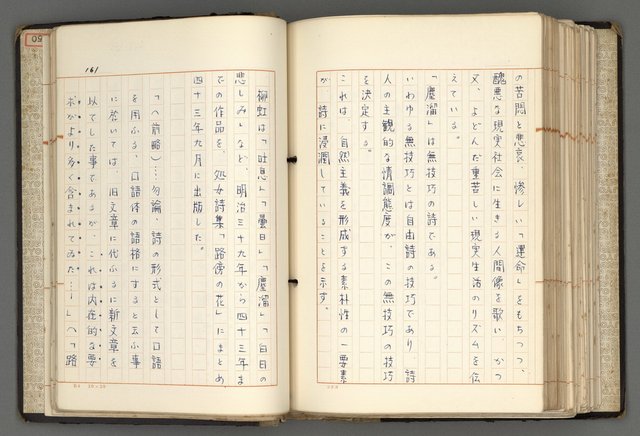 の苦悶と悲哀、惨しい「運命」をもちつつ、
醜悪な現実社会に生きる人間像を歌い、かつ
又、よどんだ重苦しい現実生活のリズムを伝
えている。
「塵溜」は無技巧の詩である。
いわゆる無技巧とは自由詩の技巧であり、詩
人の主観的な情調態度が、この無技巧の技巧
を決定する。
これは、自然主義を形成する素朴性の一要素
が、詩に浸潤していることを示す。
161
柳虹は「吐息」「曇日」「塵溜」「白日の
悲しみ」など、明治三十九年から四十三年ま
での作品を、処女詩集「路傍の花」にまとめ
四十三年九月に出版した。
「(前略)…勿論、詩の形式として口語
を用ふる、口語体の語格にすると云ふ事
に於いては、旧文章に代ふるに新文章を
以てした事であるが、これは内在的な要
求がより多く含まれてゐた…」(「路